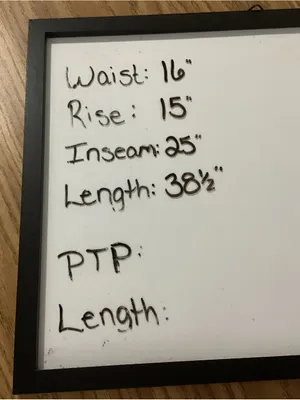 Waist: 16"
Rise: 15"
Inseam: 25"
Length: 38½"
PTP:
Length: